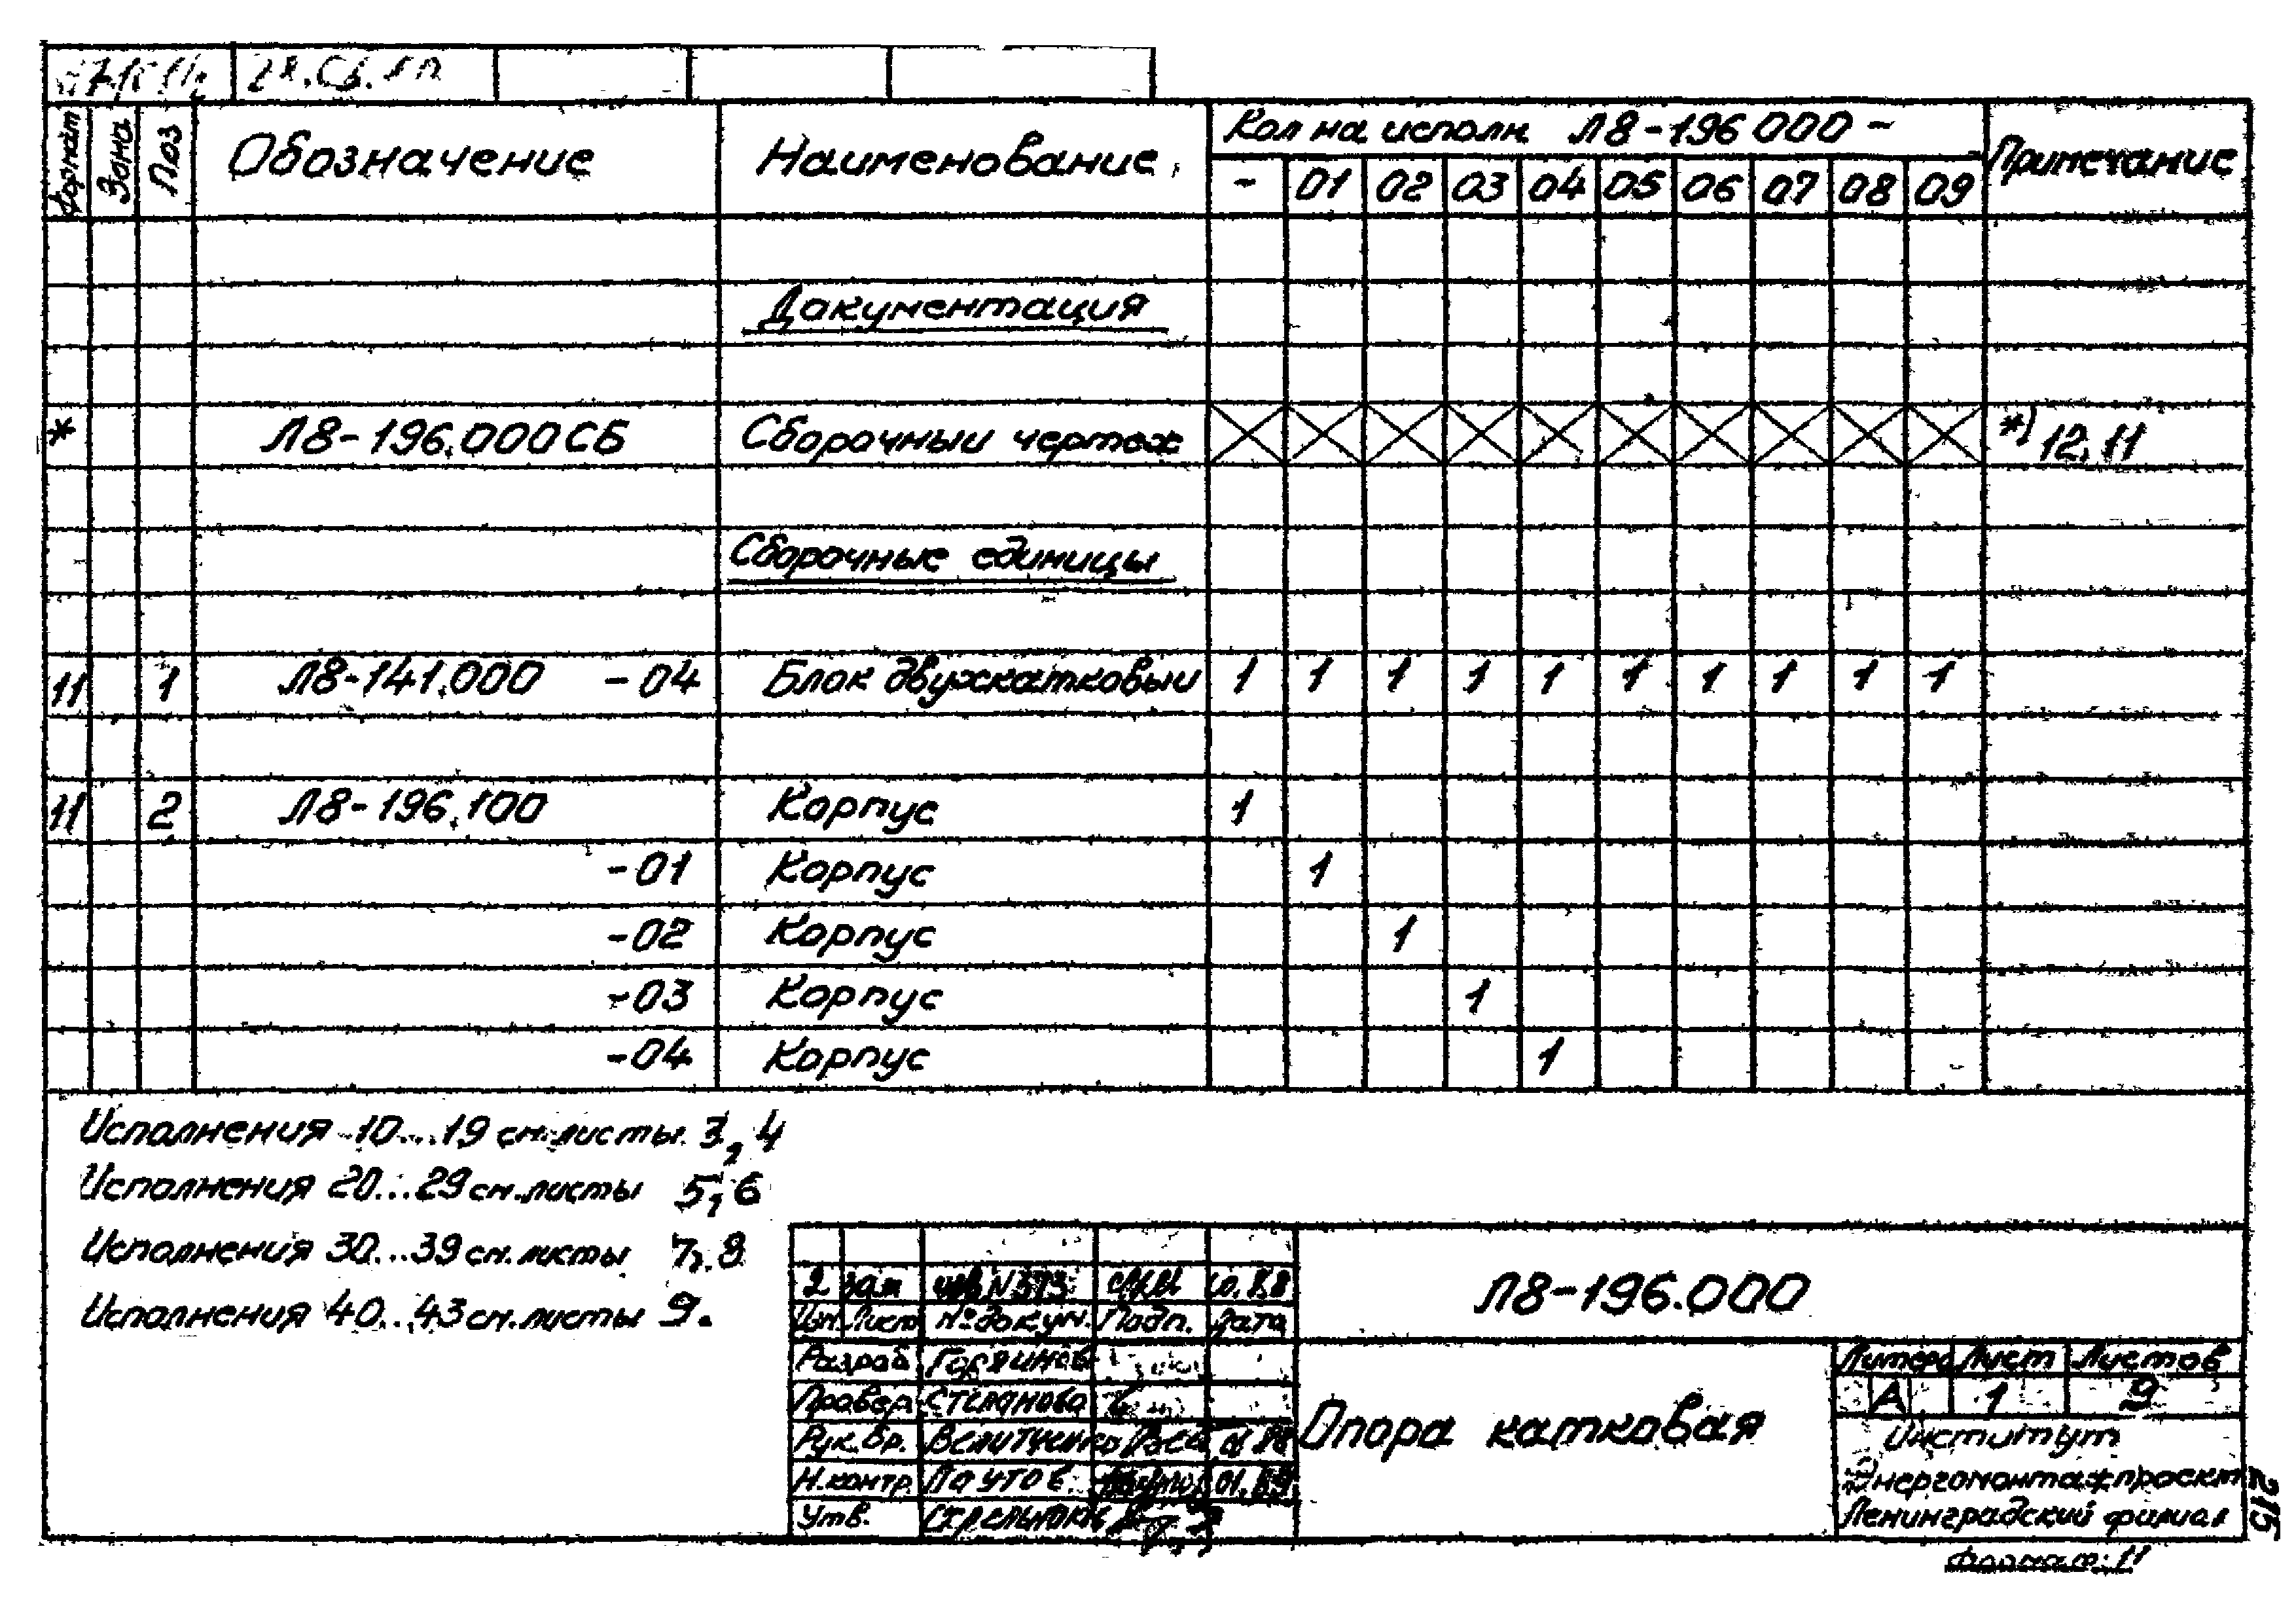 Формат Зона Поз Обозначение Наименование Кол на исполн Л8-196 000 - Примечание
- 01 02 03 04 05 06 07 08 09
Документация
* Л8-196.000СБ Сборочный чертеж *) 12, 11
Сборочные единицы
11 1 Л8-141.000 -04 Блок двухкатковый 1 1 1 1 1 1 1 1 1 1
11 2 Л8-196.100 Корпус 1
-01 Корпус 1
-02 Корпус 1
-03 Корпус 1
-04 Корпус 1
Исполнения -10...19 см.листы 3, 4
Исполнения 20...29 см.листы 5, 6
Исполнения 30...39 см.листы 7, 8
Исполнения 40...43 см.листы 9.
2 зам изв N373 10.88
Изм. Лист № докум. Подп. Дата
Разраб Горяинов
Провер. Степанова
Рук.бр. 01.88
Н.контр. Паутов 01.89
Утв.
Л8-196.000
Опора катковая
Литера Лист Листов
А 1 9
Институт
Энергомонтажпроект
Ленинградский филиал
Формат: 11
215